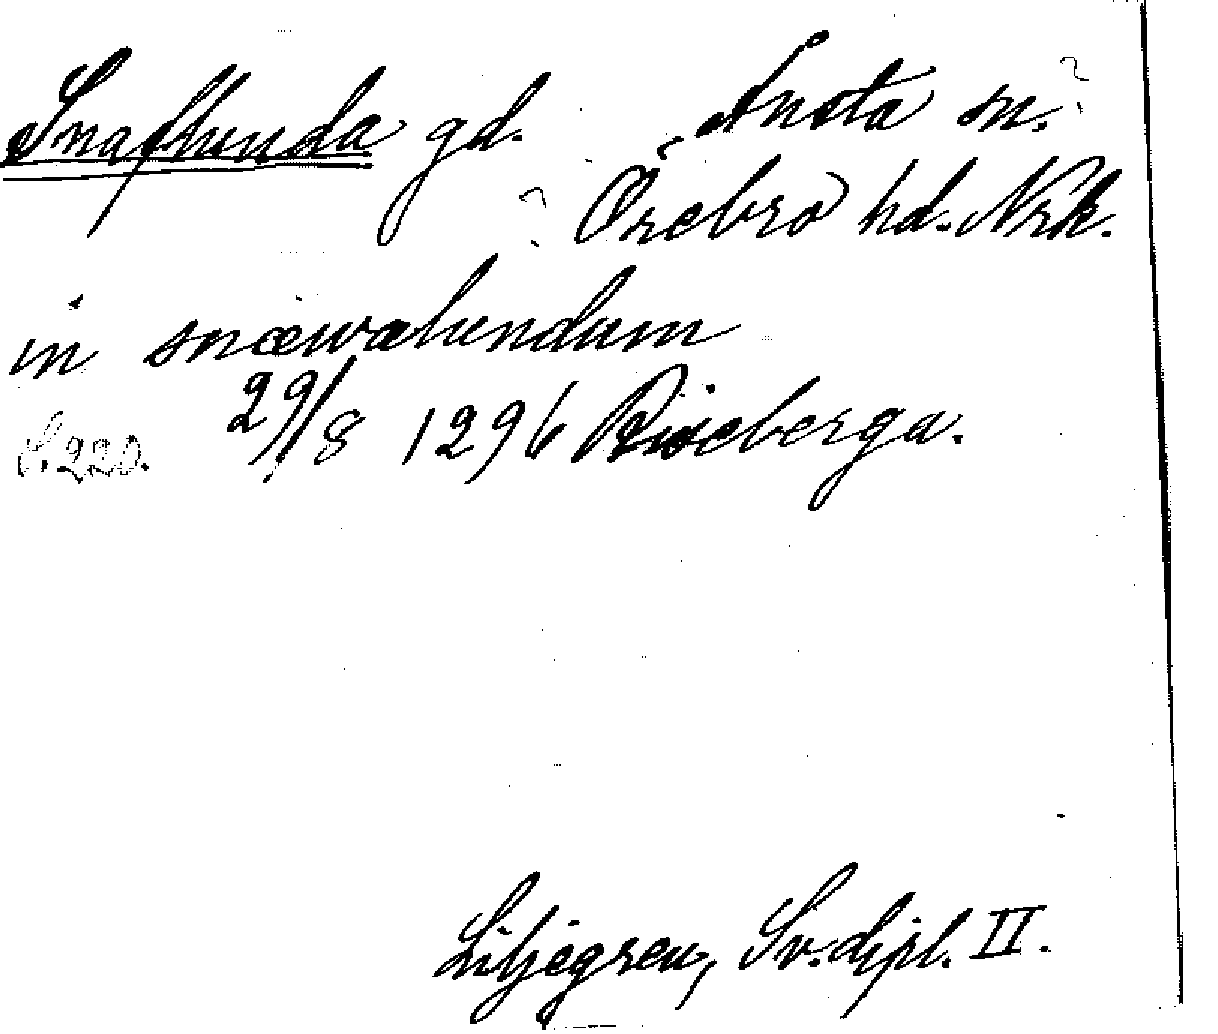 Snafhunda gd. Knista sn. ?
? Örebro hd. Nrk.
in snæwahundum
S. 220. 29/8 1296 Riseberga.
Liljegren, Sv. dipl. II.